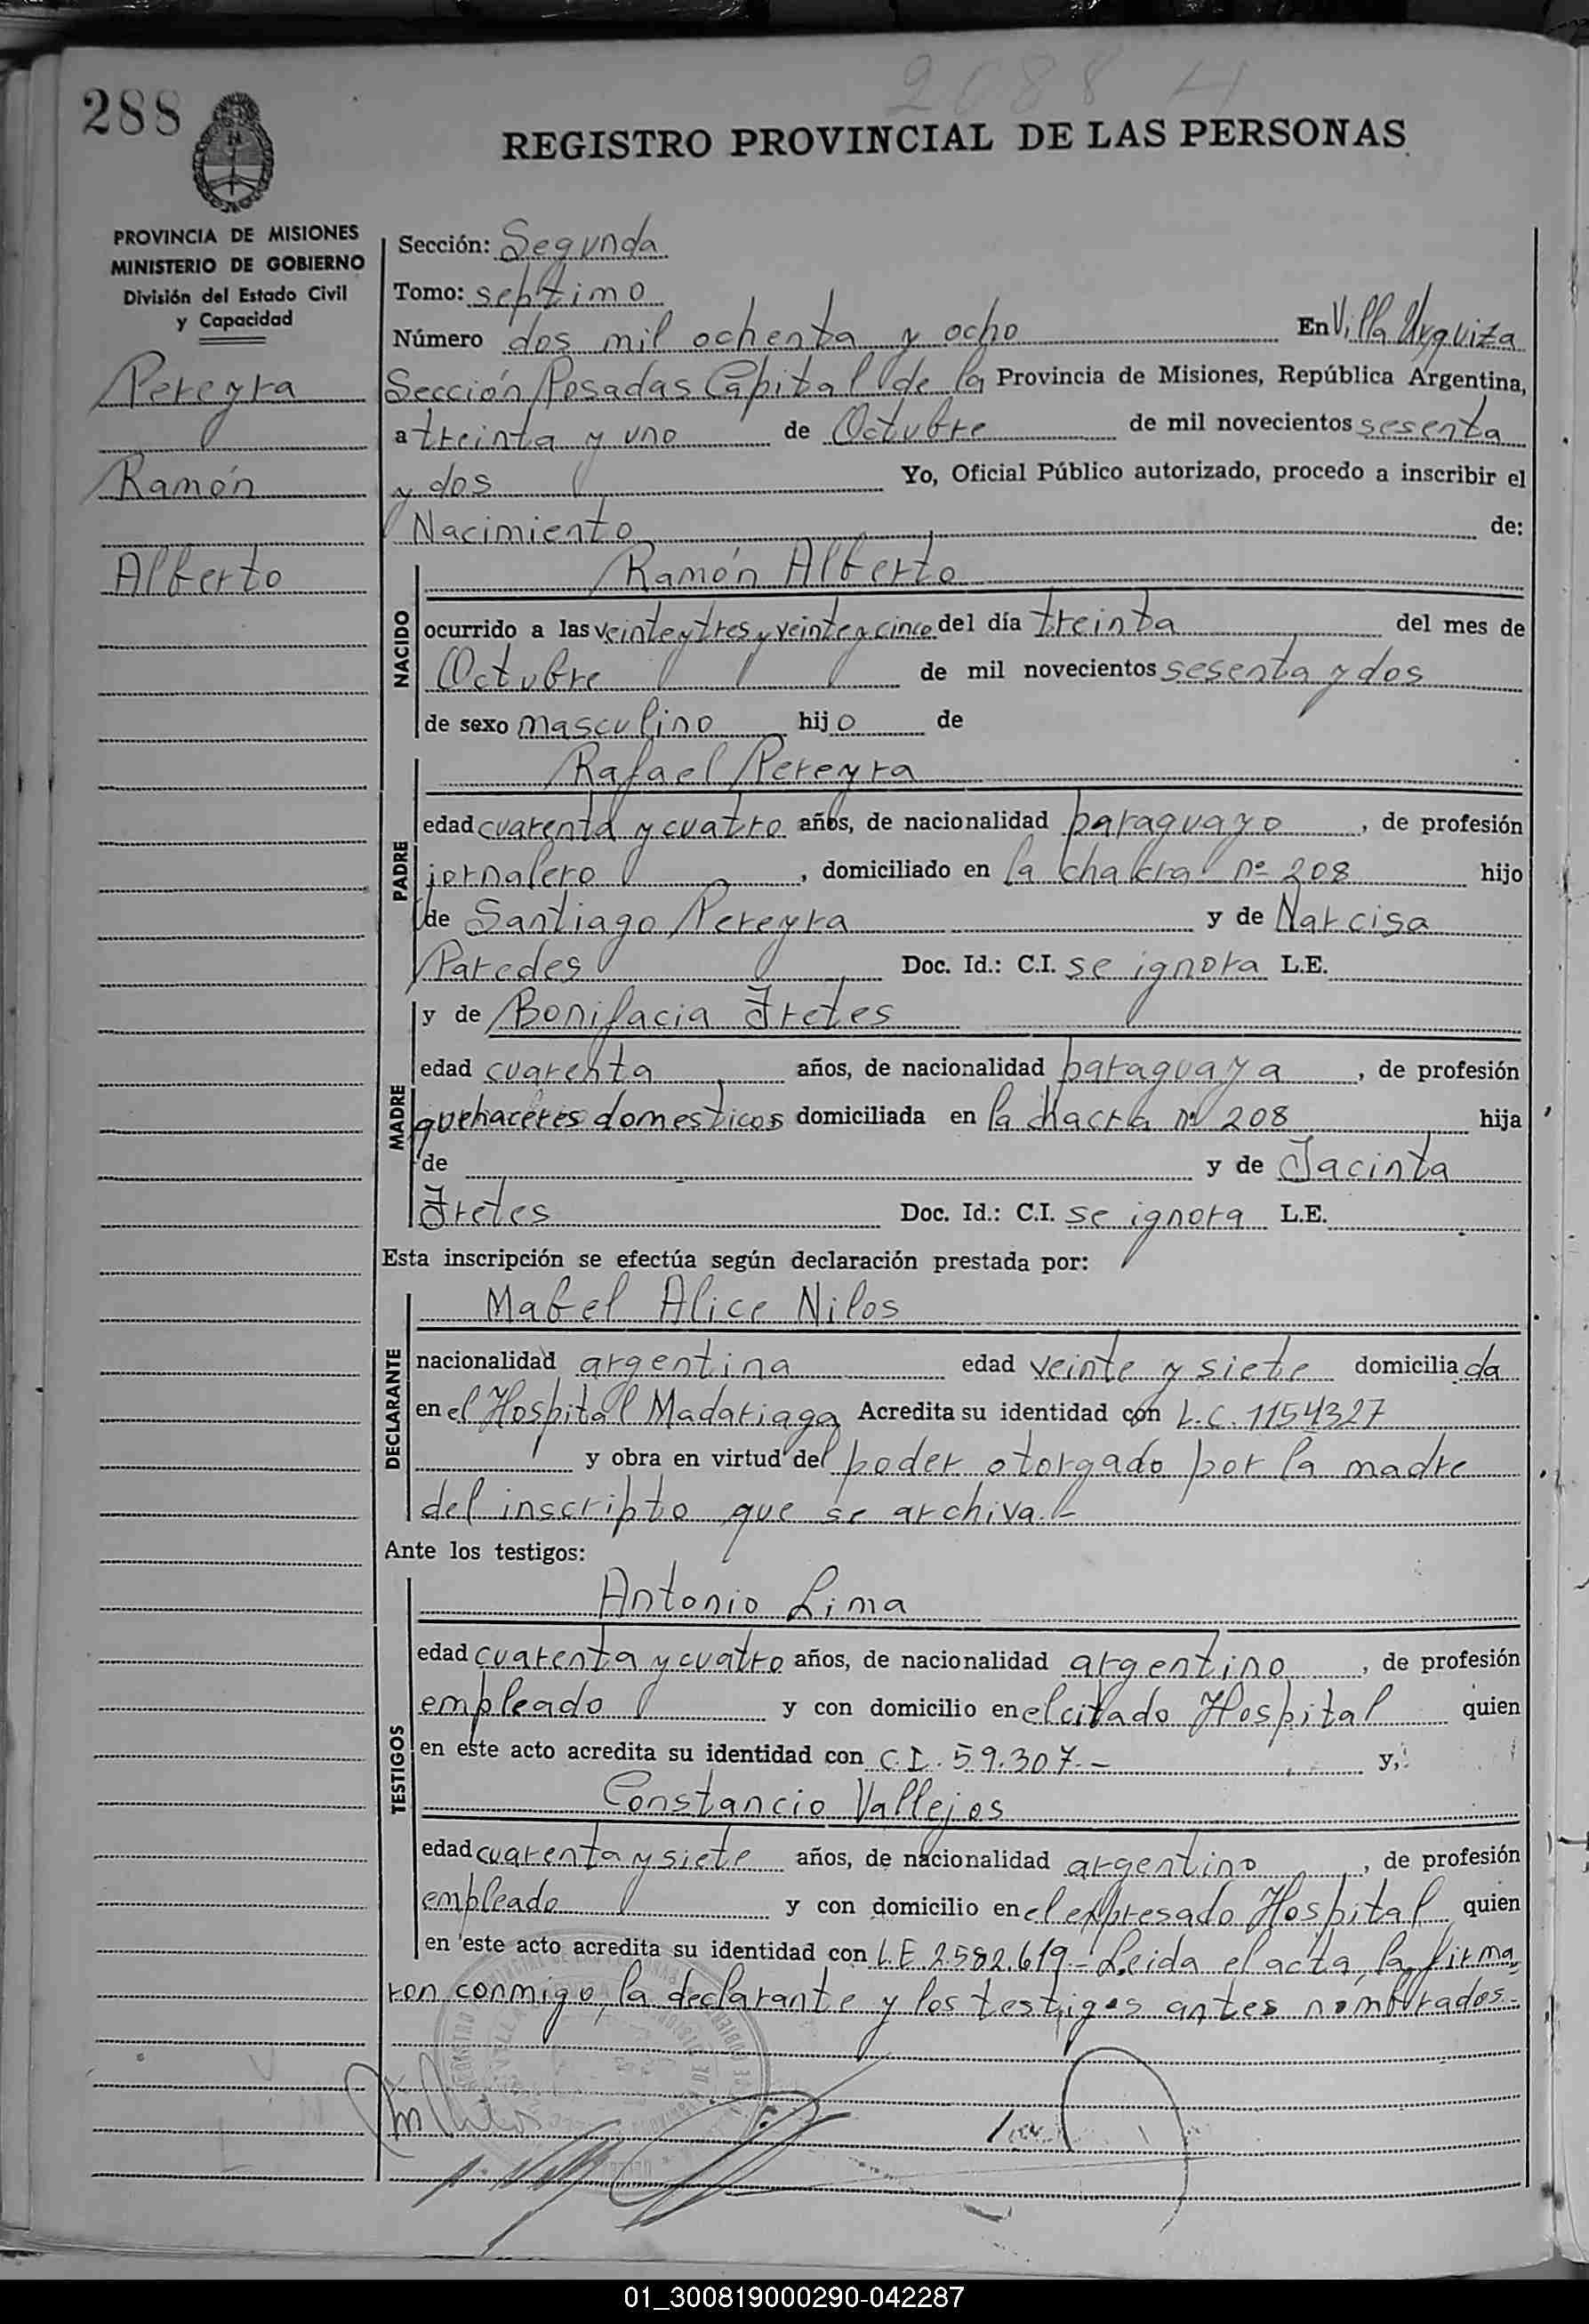 2088 H
288
REGISTRO PROVINCIAL DE LAS PERSONAS
PROVINCIA DE MISIONES
MINISTERIO DE GOBIERNO
División del Estado Civil
y Capacidad
Pereyra
Ramón
Alberto
Sección: Segunda
Tomo: septimo
Número dos mil ochenta y ocho En Villa Urquiza
Sección Posadas Capital de la Provincia de Misiones, República Argentina,
a treinta y uno de Octubre de mil novecientos sesenta
y dos Yo, Oficial Público autorizado, procedo a inscribir el
Nacimiento de:
NACIDO
Ramón Alberto
ocurrido a las veinteytres y veinteycinco del día treinta del mes de
Octubre de mil novecientos sesenta y dos
de sexo masculino hijo de
PADRE
Rafael Pereyra
edad cuarenta y cuatro años, de nacionalidad paraguayo, de profesión
jornalero, domiciliado en la chakra nº 208 hijo
de Santiago Pereyra y de Narcisa
Paredes Doc. Id.: C.I. se ignora L.E.
MADRE
y de Bonifacia Fretes
edad cuarenta años, de nacionalidad paraguaya, de profesión
quehaceres domesticos domiciliada en la chacra nº 208 hija
de y de Jacinta
Fretes Doc. Id.: C.I. se ignora L.E.
Esta inscripción se efectúa según declaración prestada por:
DECLARANTE
Mabel Alice Nilos
nacionalidad argentina edad veinte y siete domiciliada
en el Hospital Madariaga Acredita su identidad con L.C. 1154327
y obra en virtud del poder otorgado por la madre
del inscripto que se archiva.-
Ante los testigos:
TESTIGOS
Antonio Lima
edad cuarenta y cuatro años, de nacionalidad argentino, de profesión
empleado y con domicilio en el citado Hospital quien
en este acto acredita su identidad con C.I. 59.307.- y,
Constancio Vallejos
edad cuarenta y siete años, de nacionalidad argentino, de profesión
empleado y con domicilio en el expresado Hospital quien
en este acto acredita su identidad con L.E 2.582.619.- Leida el acta, la firma
ron conmigo, la declarante y los testigos antes nombrados.-
01_300819000290-042287